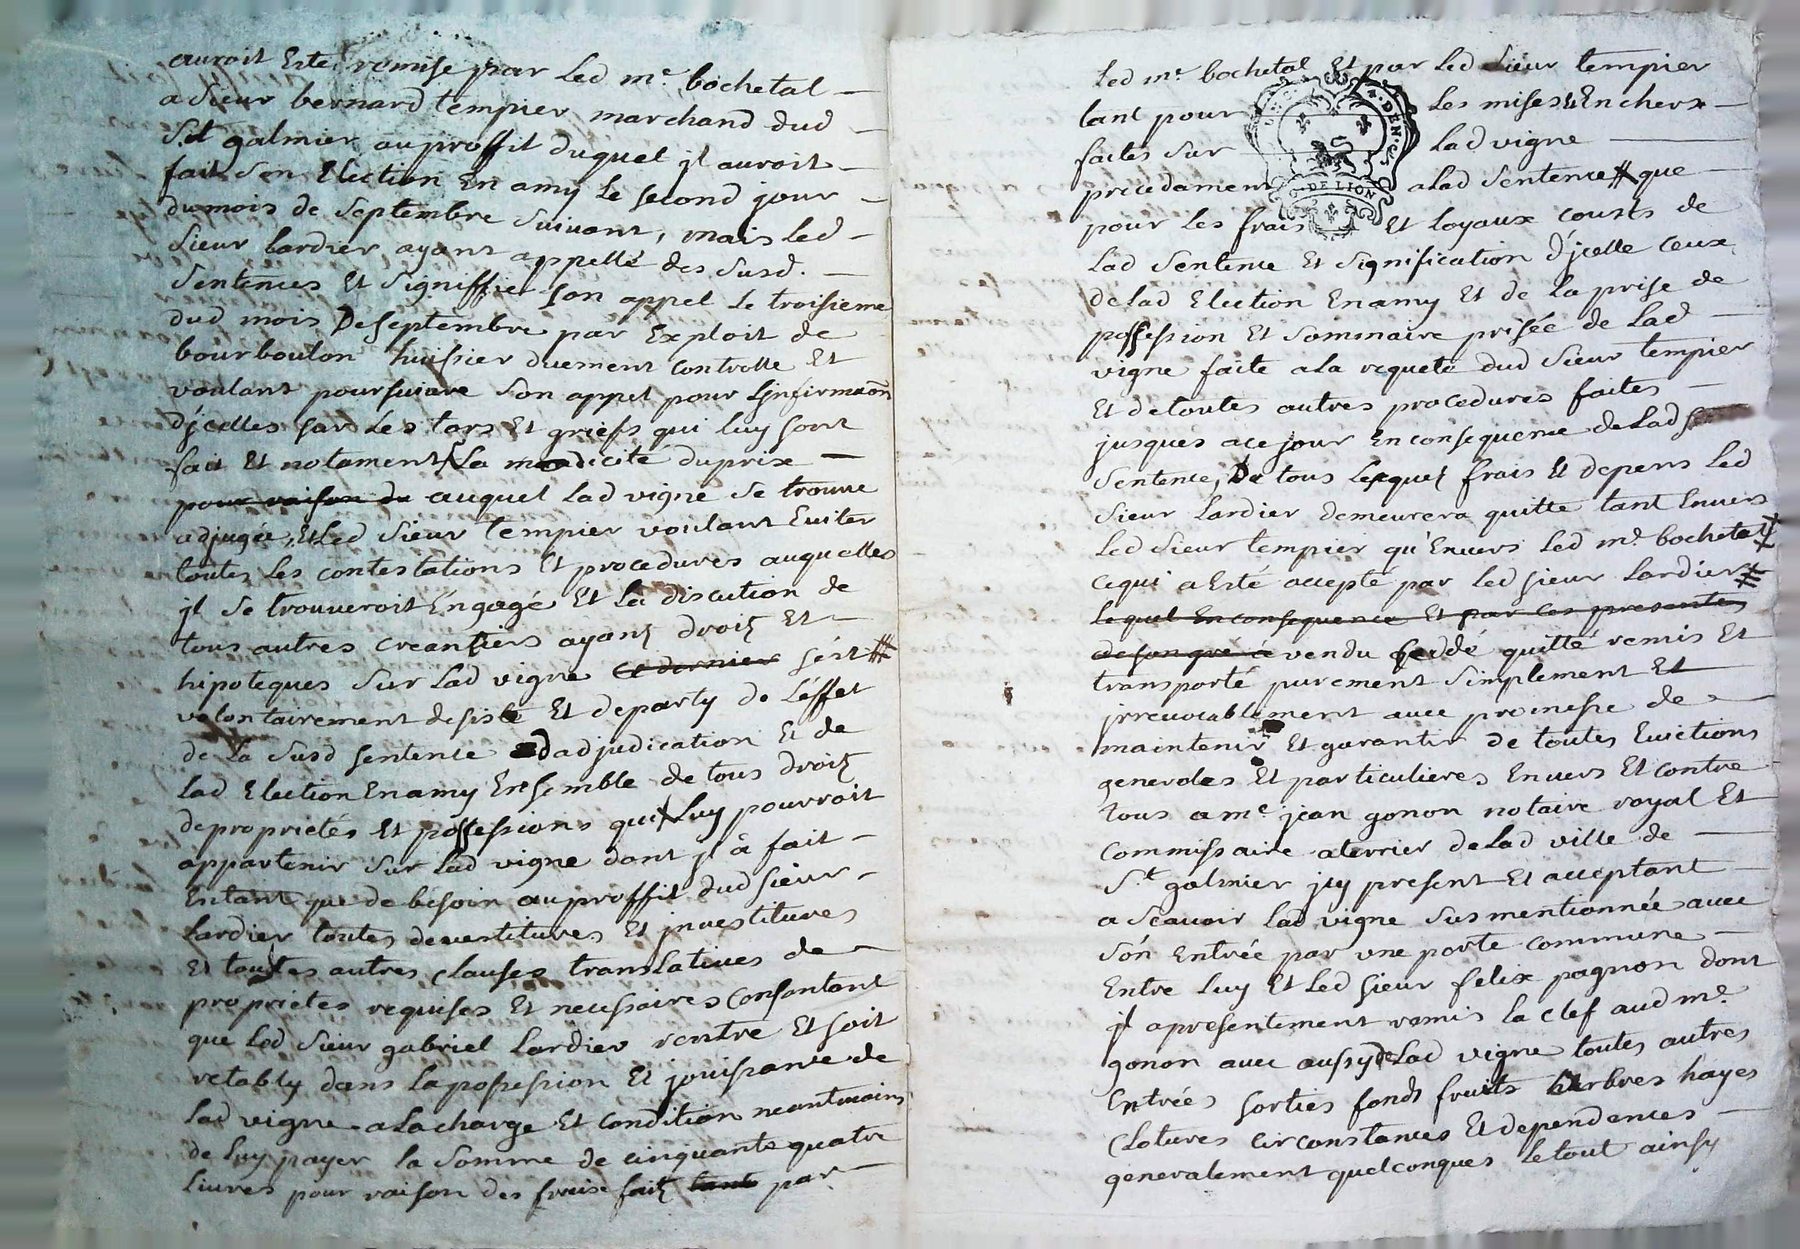 auroit Esté remise par Led me. bochetal
a sieur bernard tempier marchand dud
St. galmier auproffit duquel jl auroit
fait son Election En amy le second jour
dumois de septembre suivant, mais led
sieur lardier ayant appellé des susd.
sentences Et signiffier son appel le troisieme
dud mois De septembre par Exploit de
bourboulon huissier duement controlle Et
voulant poursuivre son appel pour Linfirmaõn
d'jcelles par Les tors Et griefs qui luy sont
fait Et notament La modicité duprix
pour raison du auquel lad vigne se trouve
adjugée, Et Led sieur tempier voulant Eviter
toutes les contestations Et procedures auquelles
jl se trouveroit Engagé Et La discution de
tous autres creantiers ayant droit Et
hipoteques sur Lad vigne Ce dernier s'est #
volontairement desisté Et departy de L'effet
de La susd sentence dadjudication Et de
Lad Election Enamy Ensemble de tous droit
deproprietés Et possessions qui Luy pourroit
appartenir sur Lad vigne dont jl à fait
Entant que de besoin auproffit dud sieur
Lardier toutes devestitures Et jnvestitures
Et toutes autres clauses translatives de
proprietes requises Et necessaires consantant
que Led sieur gabriel Lardier rentre Et soit
retably dans La possession Et jouissance de
Lad vigne a La charge Et condition neantmoins
de luy payer la somme de cinquante quatre
Livres pour raison des frais fait tant par
Led me. bochetal Et par Led sieur tempier
tant pour les mises Et Enchers
faites sur Lad vigne
precedament a Lad sentence # que
pour les frais Et loyaux cousts de
Lad sentence Et signification d'jcelle ceux
de Lad Election Enamy Et de La prise de
possession Et sommaire prisée de Lad
vigne faite a la requete dud sieur tempier
Et de toutes autres procedures faites
jusques ace jour En consequence de Lad
sentence, De tous lesquels frais Et depens Led
sieur Lardier demeurera quitte tant Envers
Led sieur tempier qu'Envers Led me. bochetal
cequi a Esté accepté par Led sieur Lardier #
Lequel En consequence Et par ces presentes
de son gré à vendu ceddé quitté remis Et
transporté purement simplement Et
jrrevocablement avec promesse de
maintenir Et garantir de toutes Evictions
generales Et particulieres Envers Et contre
tous a me jean gonon notaire royal Et
commissaire a terrier de Lad ville de
St. galmier jcy present Et acceptant
a scavoir lad vigne susmentionnée avec
son Entrée par une porte commune
Entre luy Et Led sieur felix pagnon dont
jl apresentement remis la clef aud me.
gonon avec aussy de Lad vigne toutes autres
Entrées sorties fonds fruits arbres hayes
Clotures circonstances Et dependences
generalement quelconques Le tout ainsy
G. DE LION